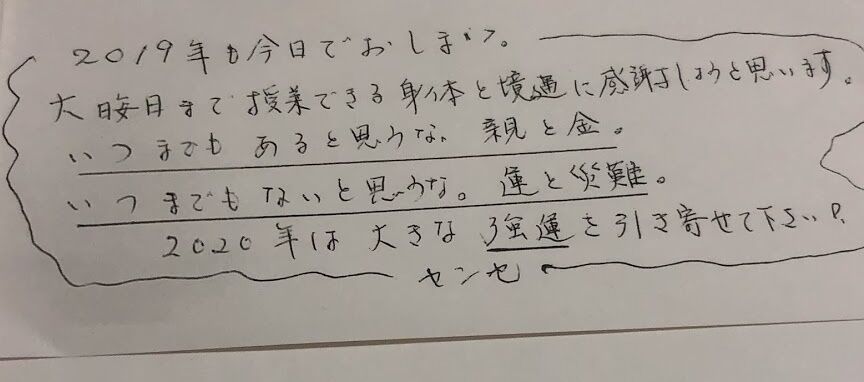 2019年も今日でおしまい。
大晦日まで授業できる身体と境遇に感謝しようと思います。
いつまでもあると思うな、親と金。
いつまでもないと思うな。運と災難。
2020年は大きな強運を引き寄せて下さい
センセ